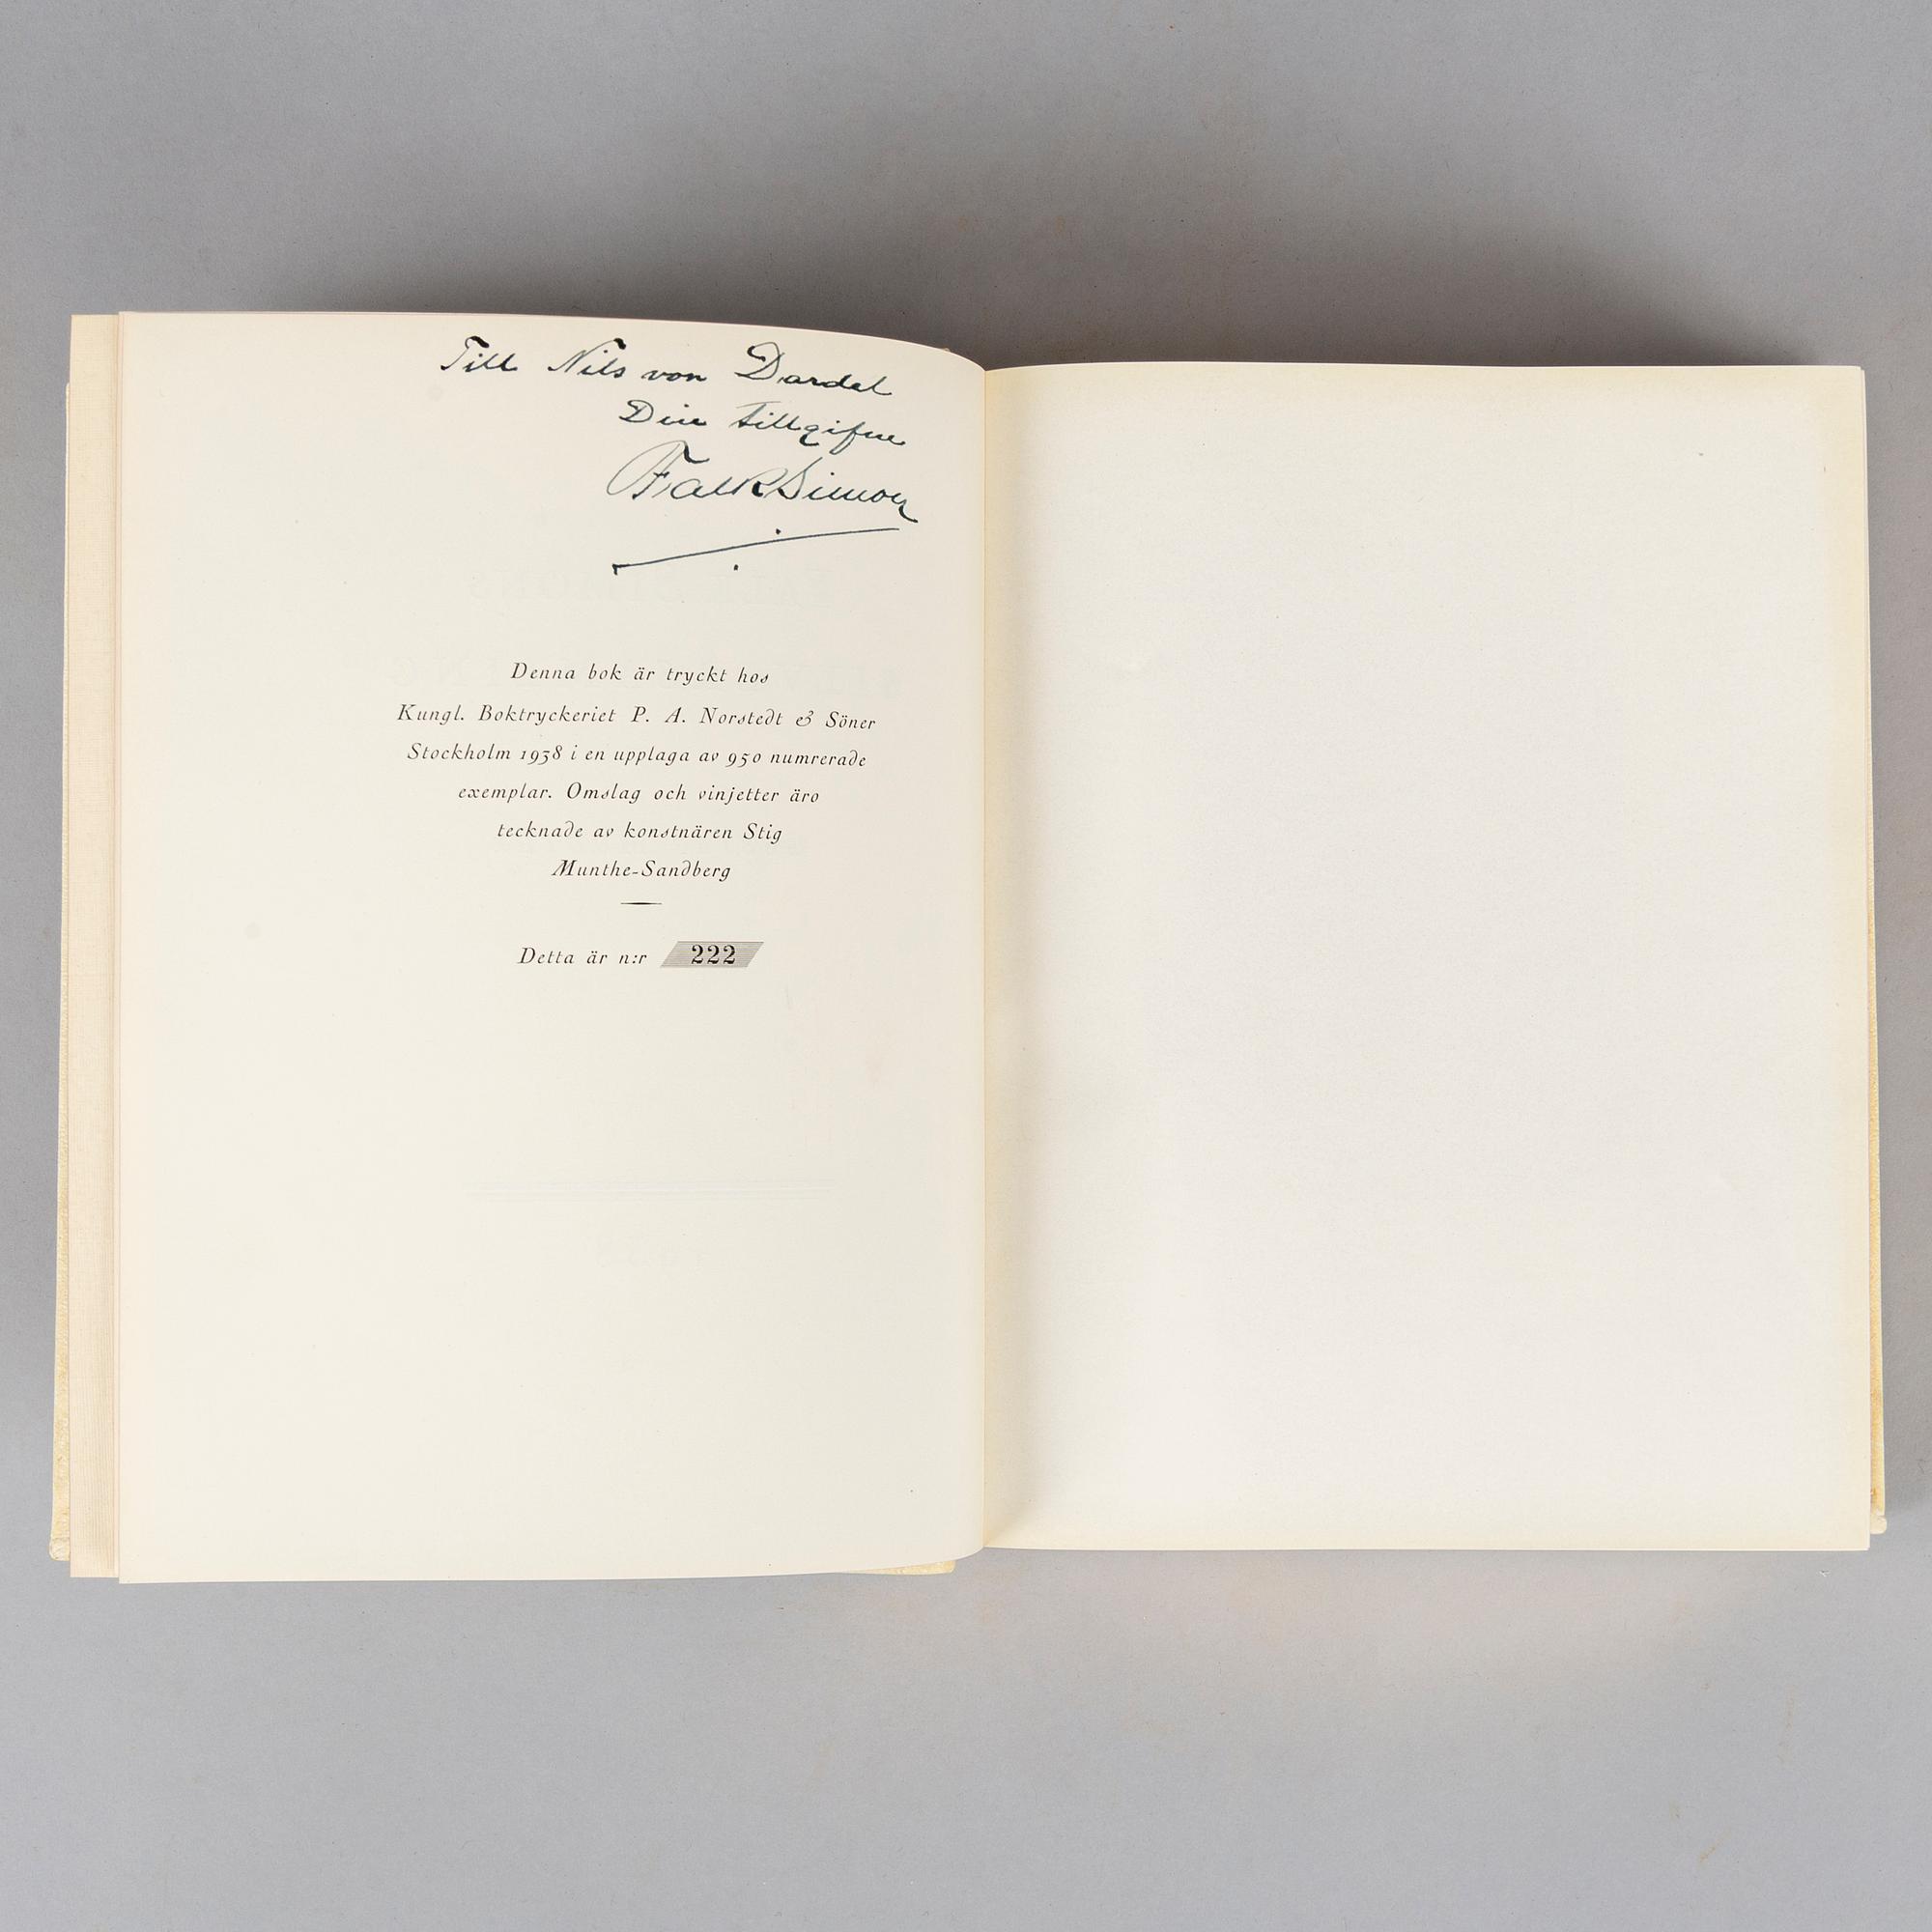 Till Nils von Dardel
Din tillgifne
Falk Simon
Denna bok är tryckt hos
Kungl. Boktryckeriet P. A. Norstedt & Söner
Stockholm 1938 i en upplaga av 950 numrerade
exemplar. Omslag och vinjetter äro
tecknade av konstnären Stig
Munthe-Sandberg
Detta är n:r 222